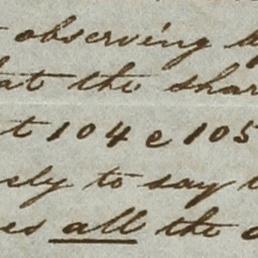 observing
at the shar
t 104 e 105
ely to say
es all the